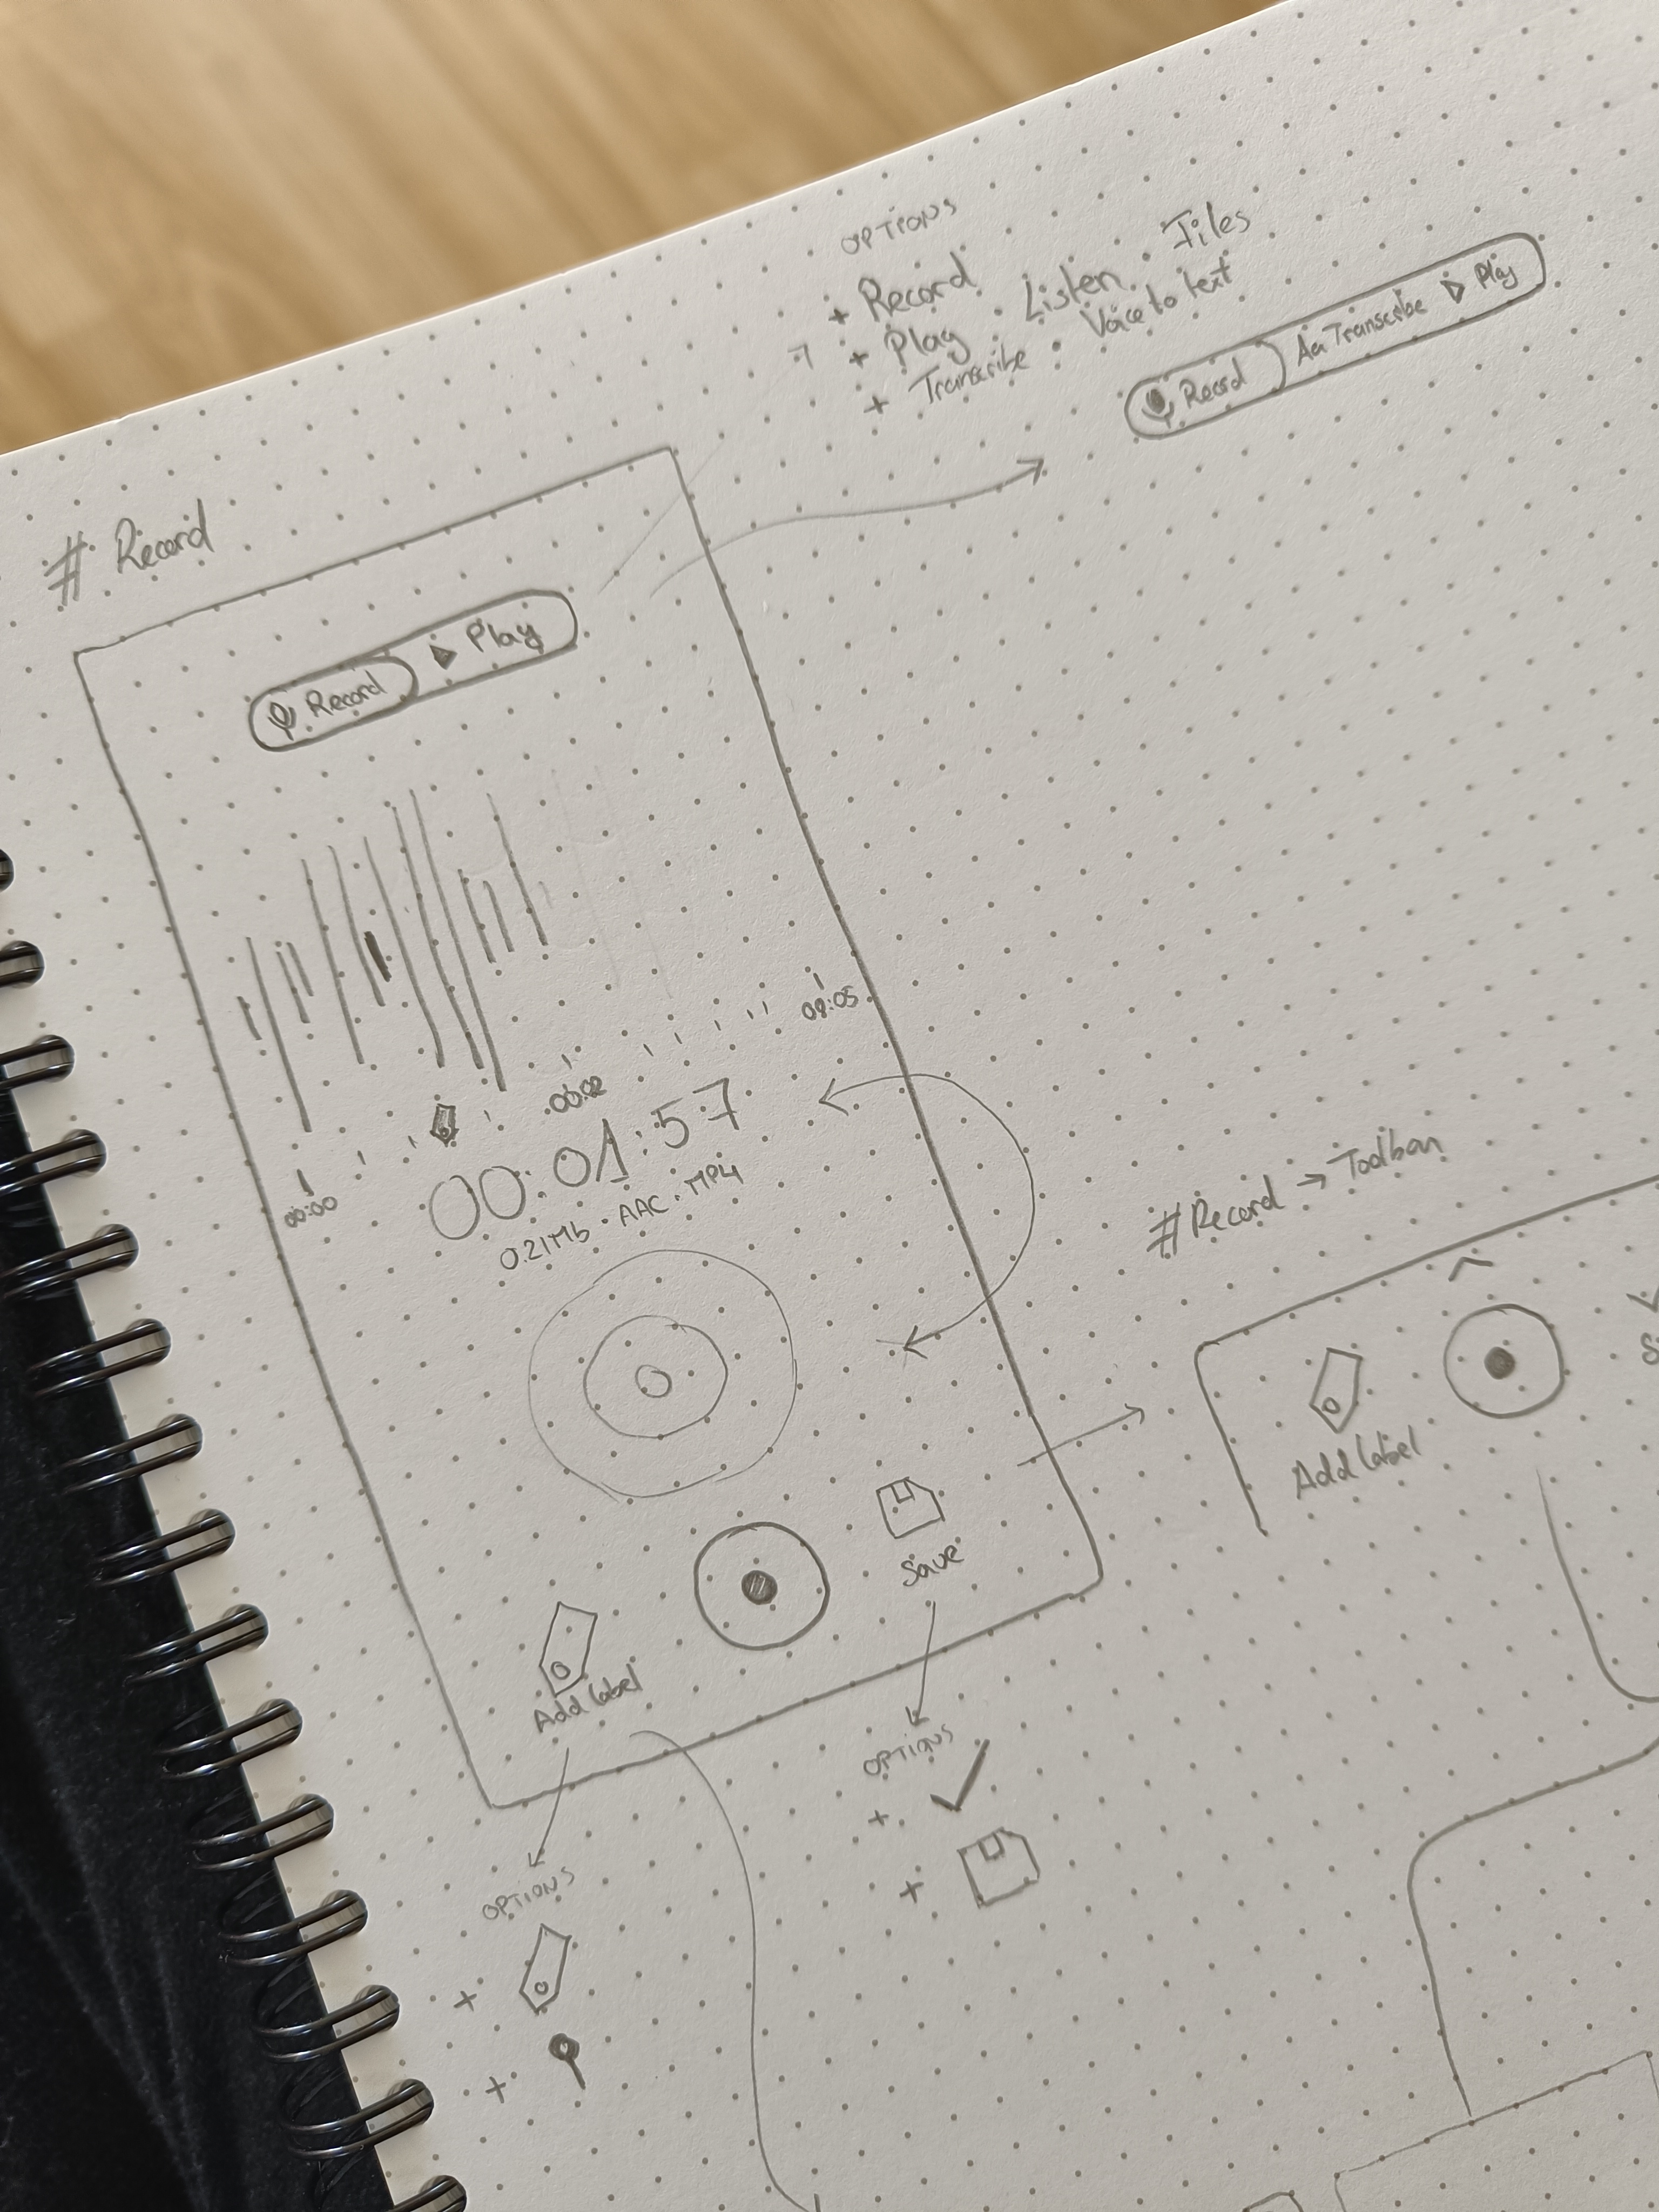 OPTIONS
+ Record
+ Play . Listen . Files
+ Transcribe . Voice to text
Record Aa Transcribe Play
# Record
Record Play
00:00 00:02 00:05
00:01:57
0.21Mb · AAC · MP4
# Record → Toolbar
Add label
Save
Add label
OPTIONS
+
+
OPTIONS
+
+